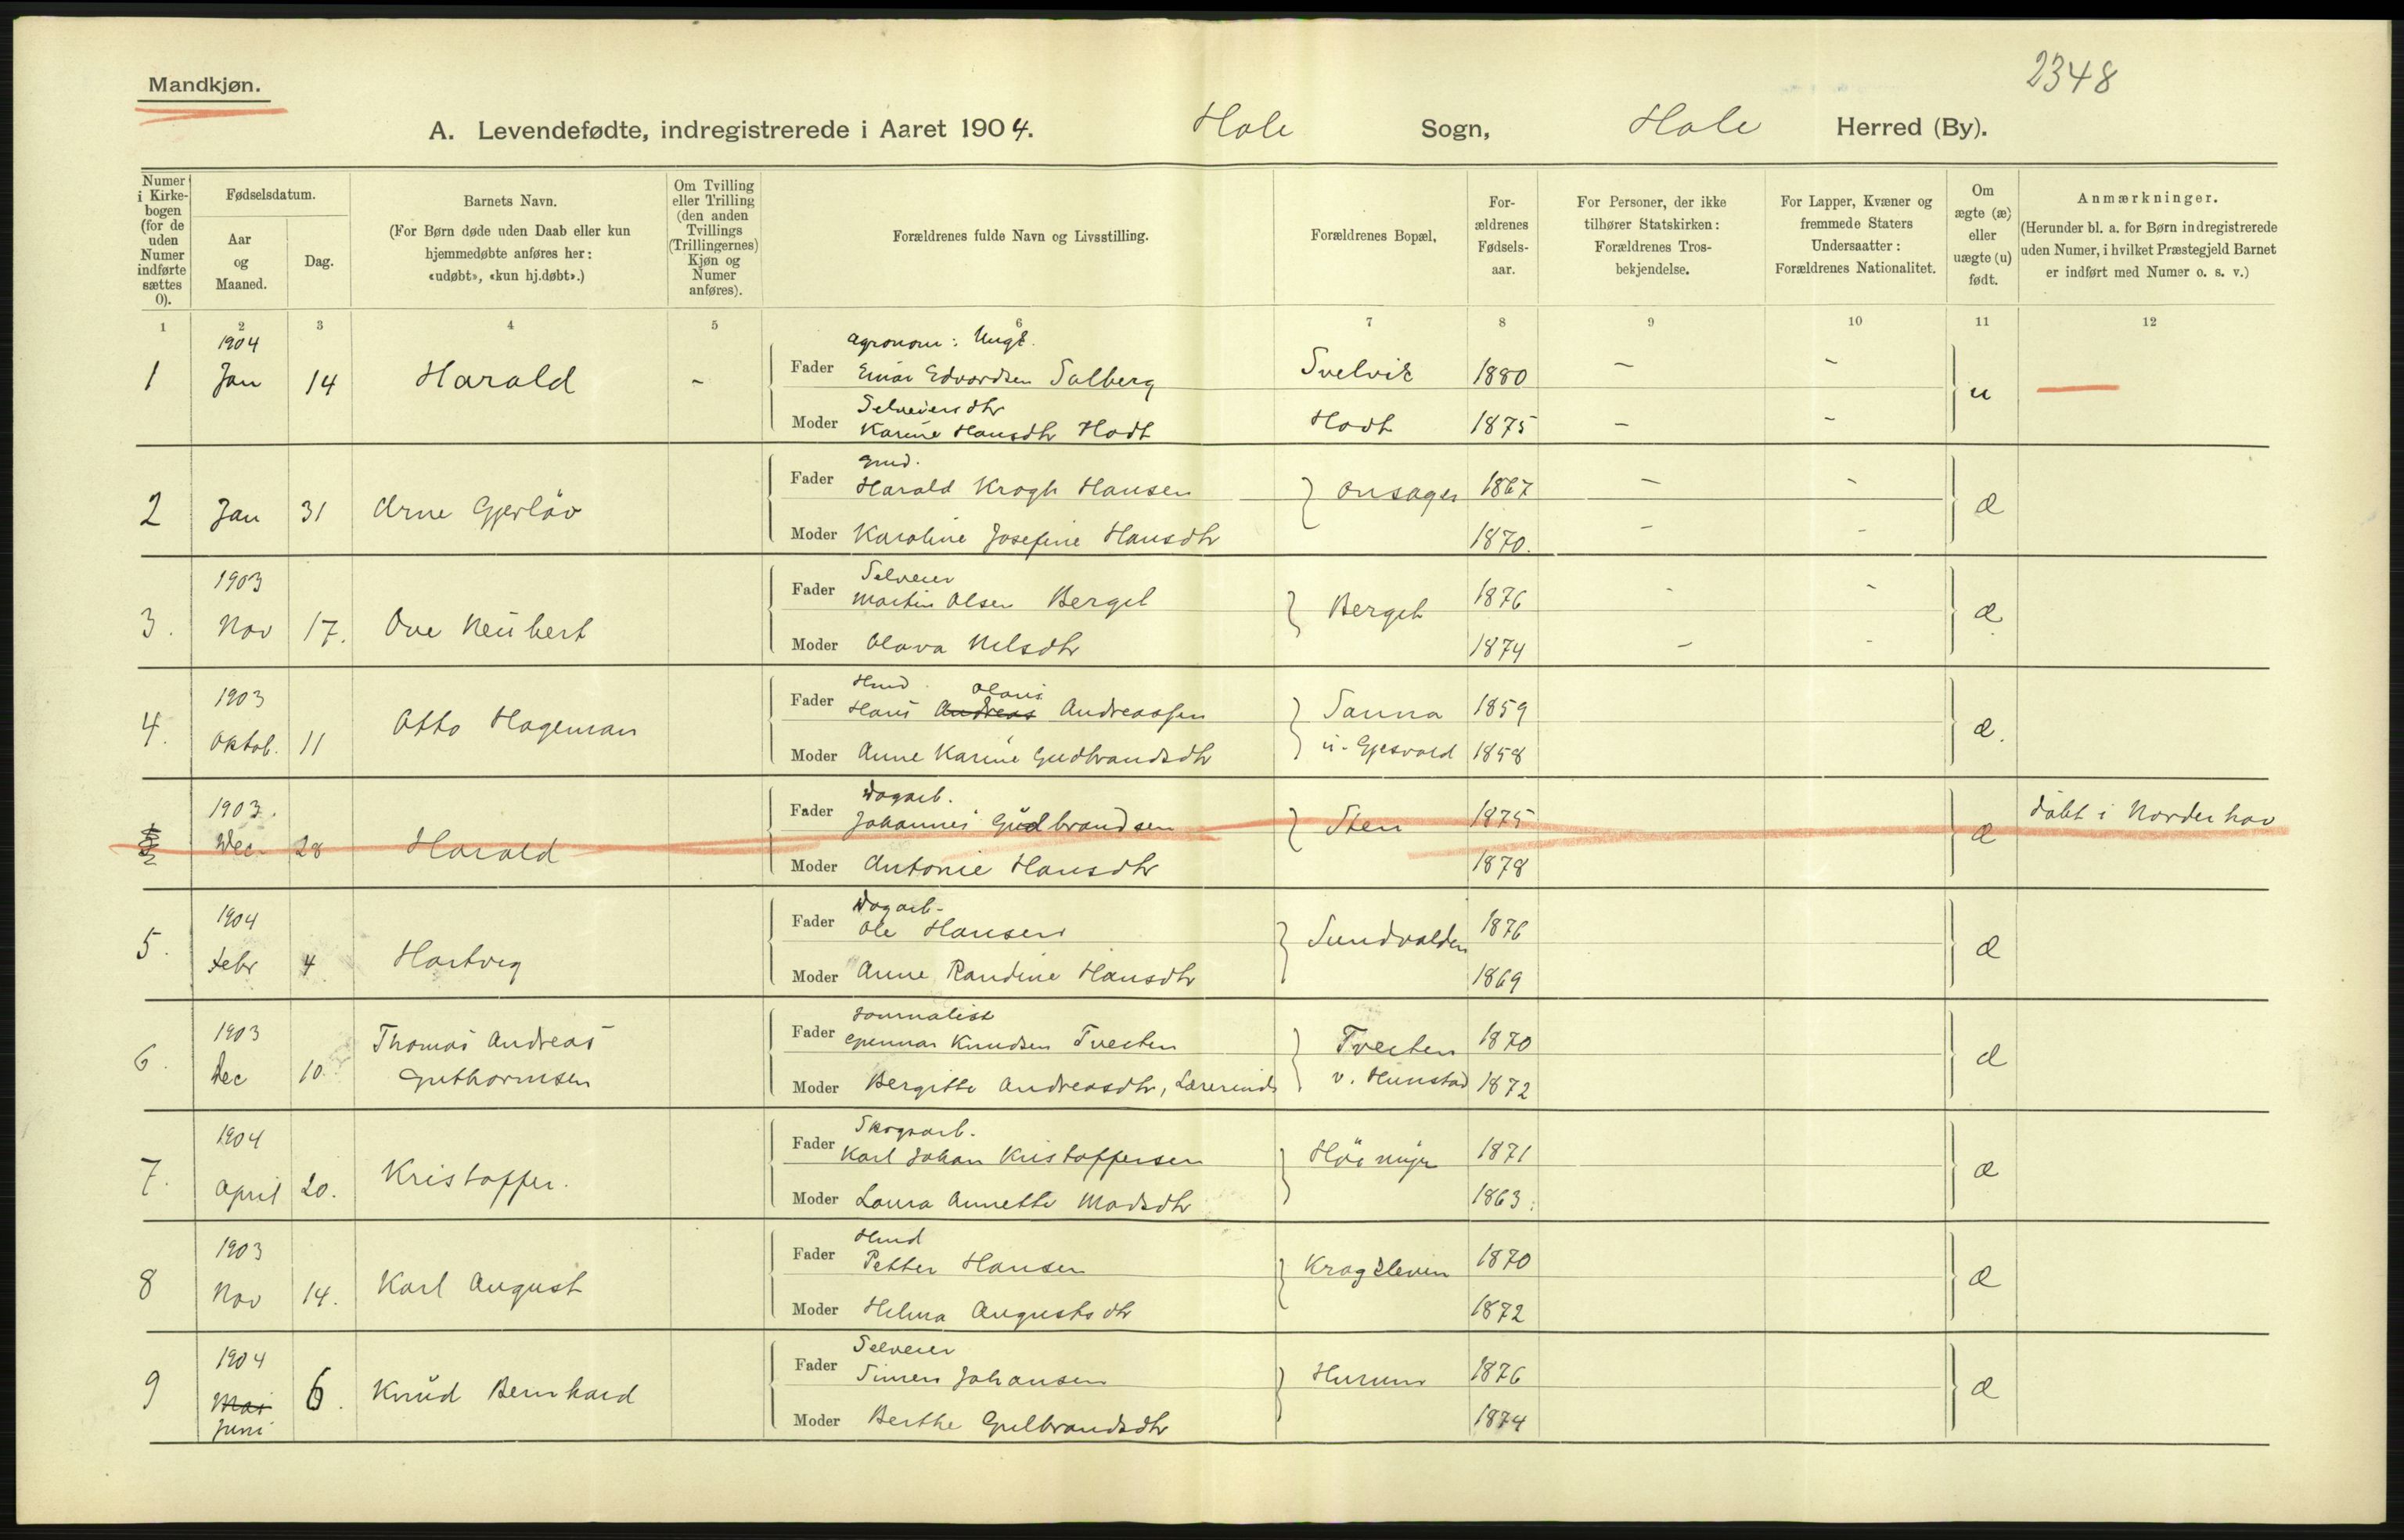 2348
Mandkjøn.
A. Levendefødte, indregistrerede i Aaret 1904. Hole Sogn, Hole Herred (By).
Numer i Kirkebogen (for de uden Numer indførte sættes 0).
Fødselsdatum.
Aar og Maaned.
Dag.
Barnets Navn.
(For Børn døde uden Daab eller kun hjemmedøbte anføres her: «udøbt», «kun hj.døbt».)
Om Tvilling eller Trilling (den anden Tvillings (Trillingernes) Kjøn og Numer anføres).
Forældrenes fulde Navn og Livsstilling.
Forældrenes Bopæl,
Forældrenes Fødselsaar.
For Personer, der ikke tilhører Statskirken: Forældrenes Trosbekjendelse.
For Lapper, Kvæner og fremmede Staters Undersaatter: Forældrenes Nationalitet.
Om ægte (æ) eller uægte (u) født.
Anmærkninger.
(Herunder bl. a. for Børn indregistrerede uden Numer, i hvilket Præstegjeld Barnet er indført med Numer o. s. v.)
1 2 3 4 5 6 7 8 9 10 11 12
1904 agronom: Ungk.
1 Jan 14 Harald - Fader Einar Edvardsen Solberg Svelvik 1880 - - u
Selveiersdtr
Moder Karine Hansdtr Hodt Hodt 1875 - -
Gmd.
Fader Harald Krogh Hansen Onsager 1867 - -
2 Jan 31 Arne Gjerløv æ
Moder Karoline Josefine Hansdtr 1870. - -
1903 Selveier
Fader Martin Olsen Berget Berget 1876 - -
3. Nov 17. Ove Neubert æ
Moder Olava Nilsdtr 1874 - -
1903 Hmd. Olaus
Fader Hans Andreas Andreassen Sanna 1859
4. Oktob. 11 Otto Hageman æ.
Moder Anne Karine Gudbrandsdtr u. Gjesvold 1858
1903. Dagarb. døbt i Norderhov
Fader Johannes Gudbrandsen Sten 1875
Dec 28 Harald æ
Moder Antonie Hansdtr 1878
1904 Dagarb.
Fader Ole Hansen Sundvolden 1876
5. Febr 4 Hartvig æ
Moder Anne Randine Hansdtr 1869
1903 Journalist
Fader Gunnar Knudsen Tveiten Tveiten 1870
6. Dec 10. Thomas Andreas Guthormsen æ
Moder Bergitte Andreasdtr, Lærerinde v. Hunstad 1872
1904 Skogsarb.
Fader Karl Johan Kristoffersen 1871
7. April 20. Kristoffer. æ
Moder Laura Annette Madsdtr 1863.
1903 Hmd
Fader Petter Hansen Kragskleven 1870
8 Nov 14. Karl August æ
Moder Helma Augustsdtr 1872
1904 Selveier
Fader Simen Johansen Hurum 1876
9 Mai 6. Knud Bernhard æ
Juni
Moder Berthe Gulbrandsdtr 1874